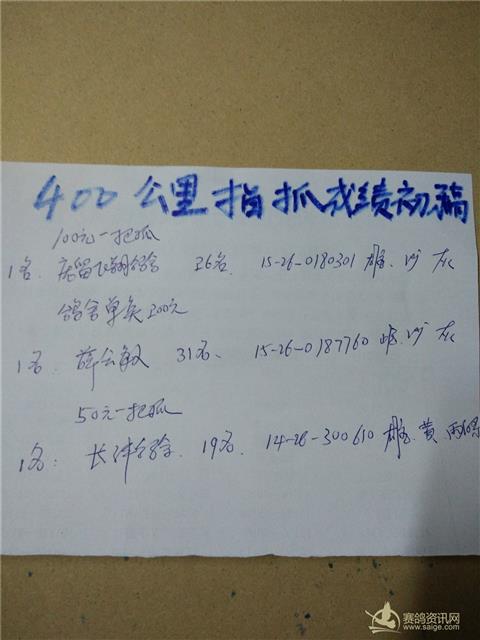 400公里指抓成绩初稿
100元一把抓
1名. 居留飞翔鸽舍 26名. 15-26-0180301 雄. 沙 灰
鸽舍单关200元
1名. 薛公敏 31名、 15-26-0187760 雌. 沙 灰
50元一把抓
1名: 长津鸽舍. 19名. 14-26-300610 雄. 黄. 雨
赛鸽资讯网
www.saige.com